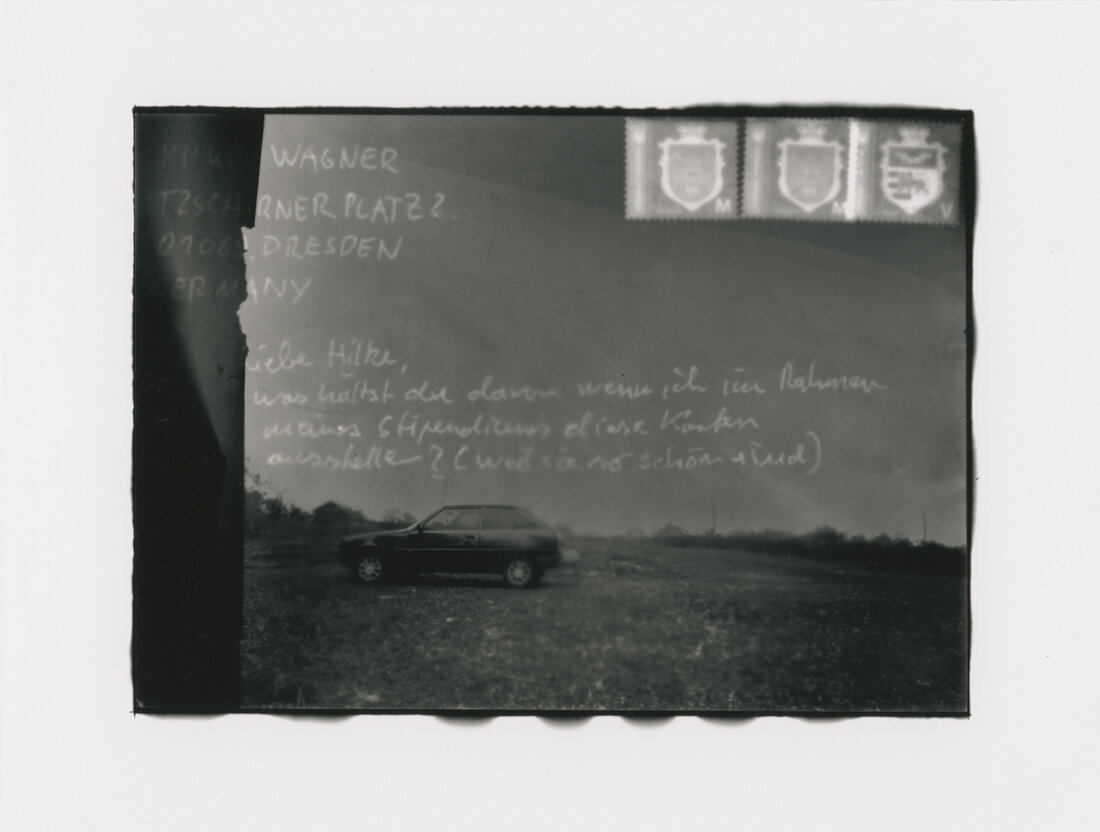 HILKE WAGNER
TZSCHIRNERPLATZ 2.
01067 DRESDEN
GERMANY
M
M
V
Liebe Hilke,
was hältst du davon wenn ich im Rahmen
meines Stipendiums diese Karten
ausstelle? (weil sie so schön sind)